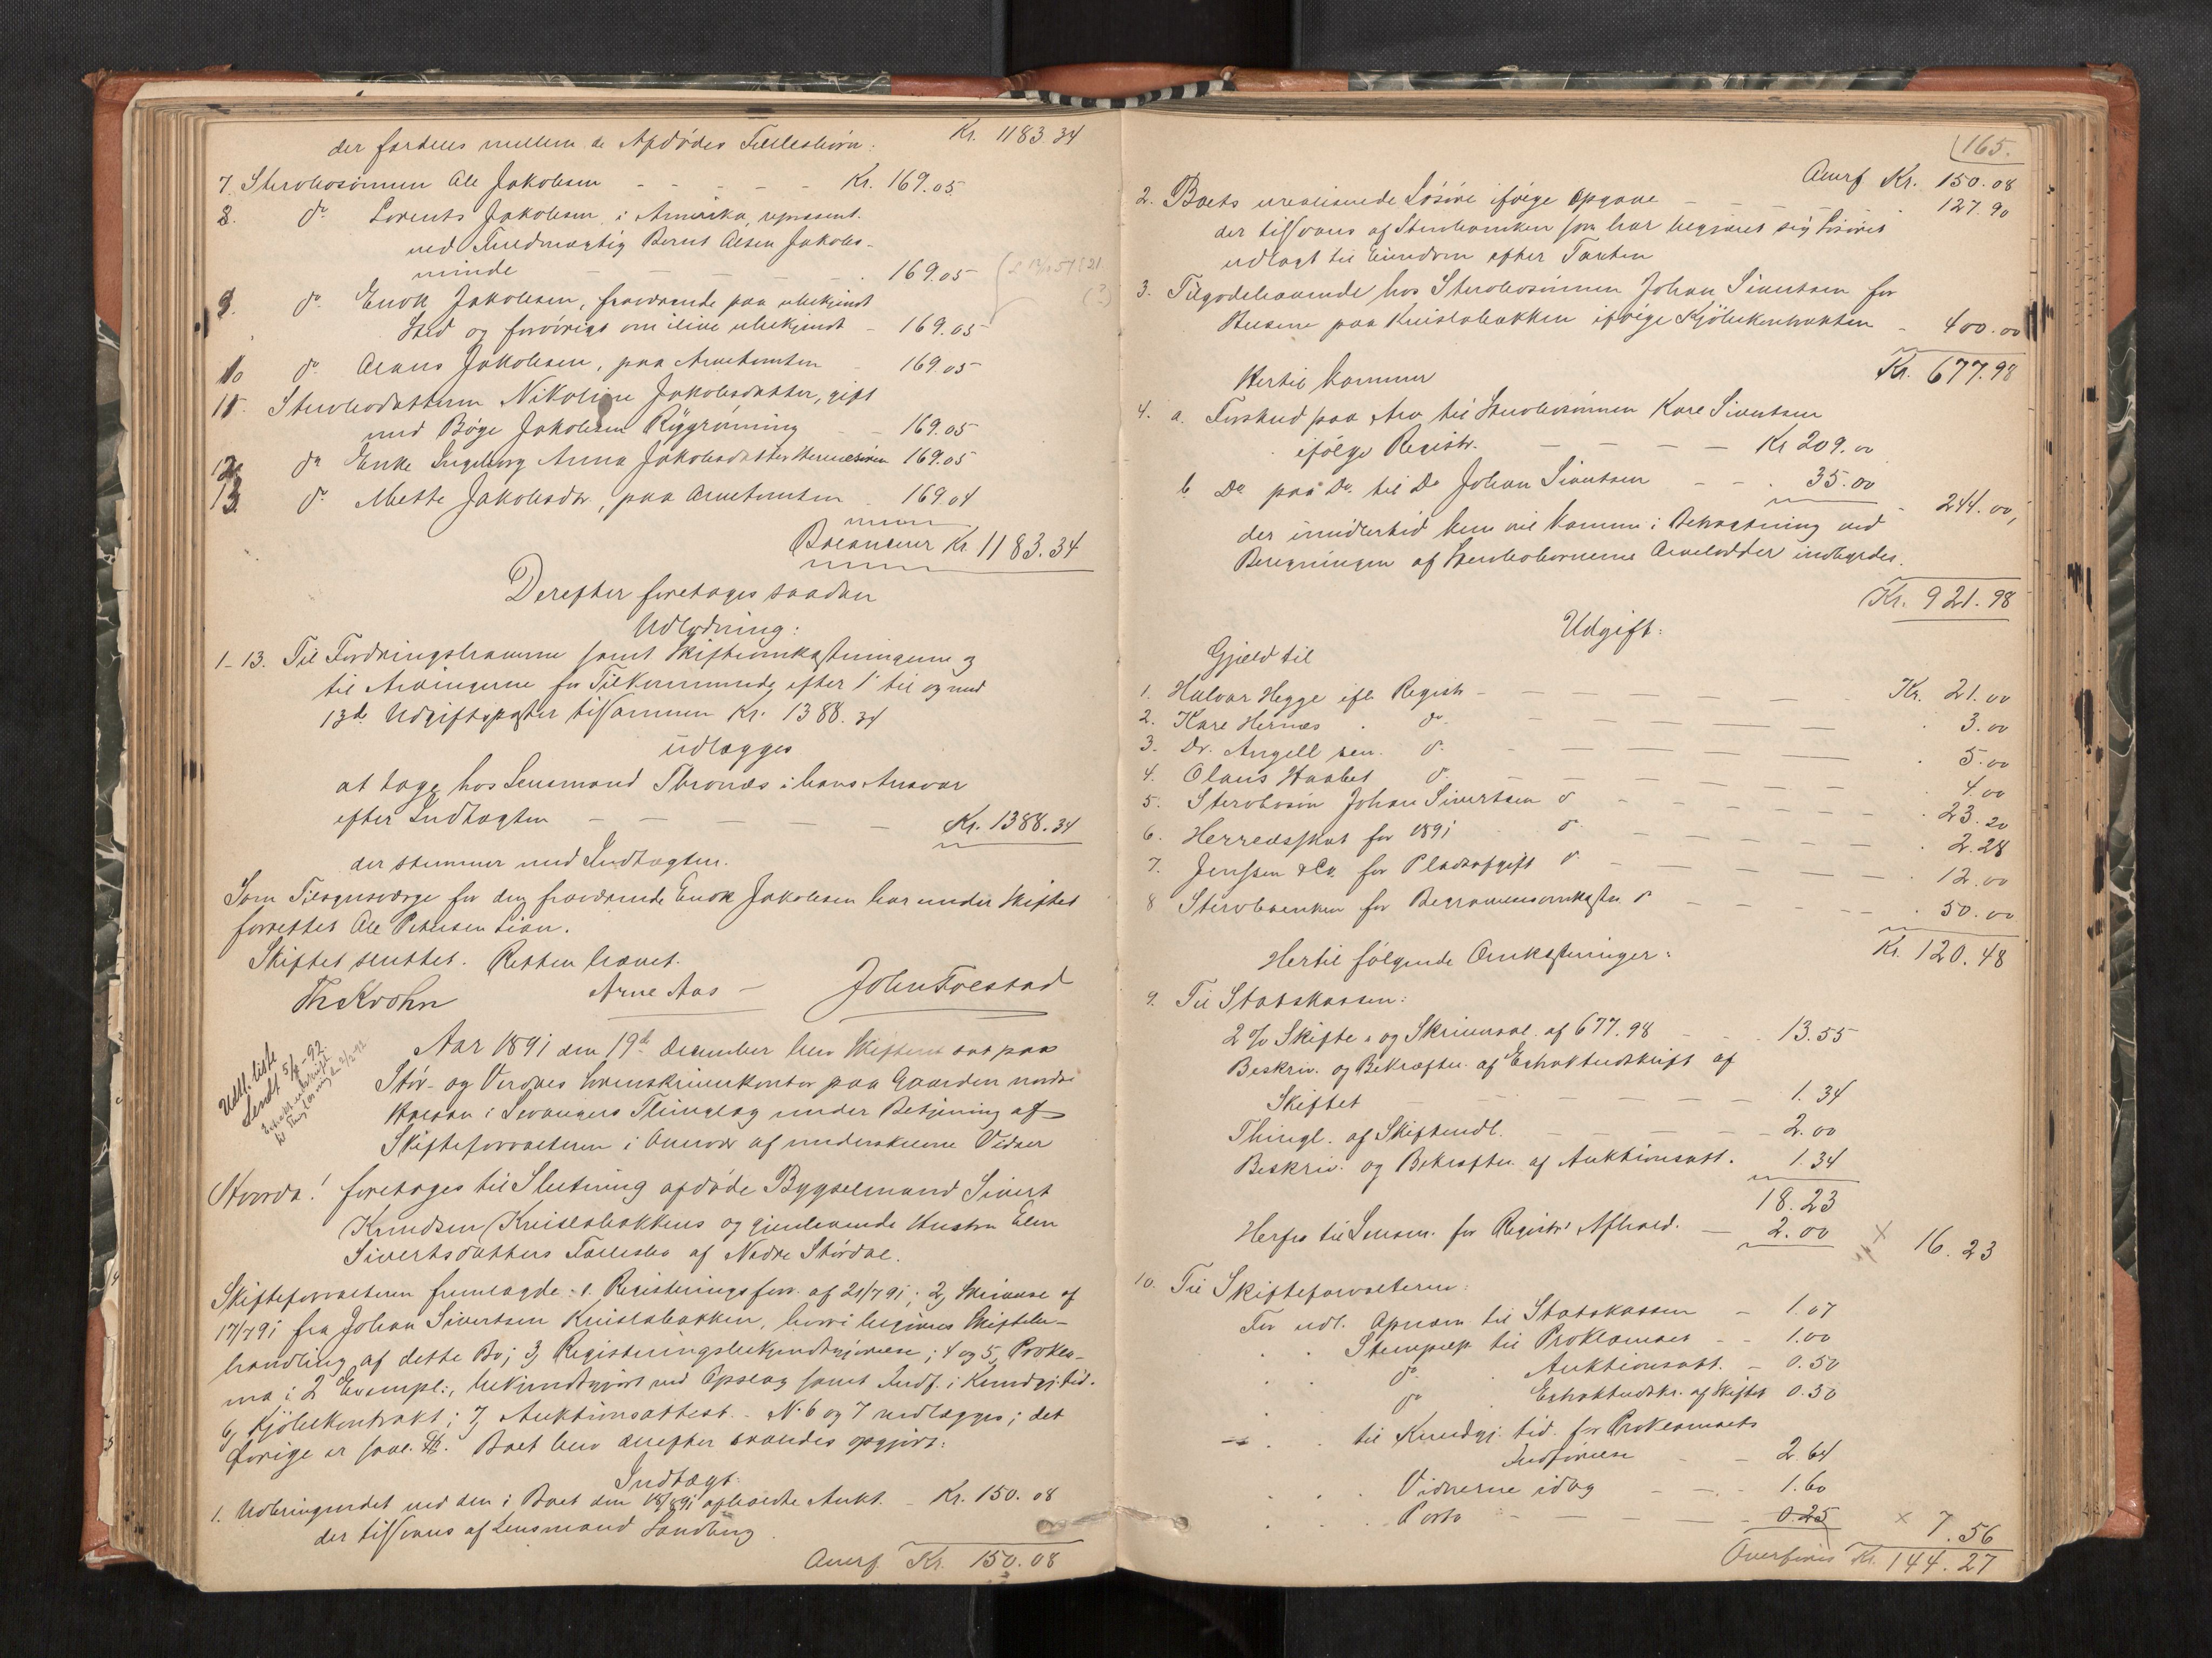 der fordeles mellem de Afdødes Fællesbørn: Kr. 1183.34
7. Sterbosønnen Ole Jakobsen - - - - - Kr. 169.05
8. do Lorents Jakobsen, i Amerika, repræsent.
ved Fuldmægtig Bernt Olsen Jakobs-
minde - - - - - 169.05
9. do Enok Jakobsen, fraværende paa ubekjendt
Sted og forøvrigt om ilive ubekjendt - 169.05
10 do Olaus Jakobsen, paa Arvetomten - 169.05
11. Sterbodatteren Nikoline Jakobsdatter, gift
med Böge Jakobsen Ryggrönning - - 169.05
12. do Enke Ingeborg Anna Jakobsdatter 169.05
13. do Mette Jakobsdtr, paa Arvetomten - 169.04
Balancerer Kr. 1183.34
Derefter foretoges saadan
Udlodning:
1-13. Til Fordringshaverne samt Skifteomkostningerne og
til Arvingerne for Tilkommende efter 1 til og med
13de Udgiftspost tilsammen Kr. 1388.34
udlægges
at tage hos Lensmand Thronæs i hans Ansvar
efter Indtægten - - - - Kr. 1388.34
der stemmer med Indtægten.
Som Tilsynsværge for den fraværende Enok Jakobsen har under Skiftet
forrettet Ole Petersen Lian.
Skiftet sluttet. Retten hævet.
Th Krohn Arne Aas - John Foestad
Aar 1891 den 19de December blev Skifteret sat paa
Stør- og Værdals Sorenskriverkontor paa Gaarden nordre
Halsan i Levangers Thinglag under Betjening af
Skifteforvalteren i Overvær af underskrevne Vidner
Udtl. liste
sendt 5/1-92.
Hvorda! foretoges til Slutning afdøde Bygselmand Sivert
Knudsen Knislabakkens og gjenlevende Hustru Elen
Sivertsdatters Fællesbo af Nedre Stördal.
Skifteforvalteren fremlagde: 1. Registreringsforr. af 21/7 91; 2, Skrivelse af
17/7 91 fra Johan Sivertsen Knislabakken, hvori begjæres Skiftebe-
handling af dette Bo; 3, Registreringsbekjendtgjørelse; 4 og 5, Prokla-
ma i 2 Exempl:, bekjendtgjort ved Opslag samt Indf. i Kundgj. tid.
6, Kjöbekontrakt; 7, Auktionsattest. - N. 6 og 7 vedlægges; det
øvrige er saal. Boet blev derefter saaledes opgjort:
Indtægt:
1. Udbringendet ved den i Boet den 18/8 91 afholdte Aukt. - Kr. 150.08
der tilsvares af Lensmand Sandberg.
Overf. Kr. 150.08
165.
Overf Kr. 150.08
2. Boets urealiserede Løsøre ifølge Opgave - - - 127.90
der tilsvares af Sterboenken som har begjæret sig Løsøret
udlagt til Eiendom efter Taxten
3. Tilgodehavende hos Sterbosønnen Johan Sivertsen for
Husene paa Knislabakken ifølge Kjöbekontrakten - 400.00
Kr. 677.98
Hertil kommer
4. a. Forskud paa Arv til Sterbosønnen Kare Sivertsen
ifølge Registr. - - - - Kr 209.00
b. Do paa Do. til Do Johan Sivertsen - - - 35.00
- 244.00,
der imidlertid kun vil komme i Betragtning ved
Beregningen af Sterbobørnenes Arvelodder indbyrdes.
Kr. 921.98
Udgift:
Gjæld til
1. Halvor Hegge ifl. Registr - - - - - Kr. 21.00
2. Kare Hernæs . do - - - - 3.00
3. Dr. Angell sen. do - - - - 5.00
4. Olaus Haabet do - - - - 4.00
5. Sterbosøn Johan Sivertsen do - - - - 23.20
6. Herredsskat for 1891 do - - - - 2.28
7. Jenssen & Co. for Pladsafgift do - - - 12.00
8 Sterboenken for Begravelsesomkostn. do - - - 50.00
Kr. 120.48
Hertil følgende Omkostninger:
9. Til Statskassen:
2 % Skifte- og Skriversal. af 677.98 - - 13.55
Beskriv. og Bekræftn. af Extraktudskrift af
Skiftet - - - - 1.34
Thingl. af Skifteudl. - - - - 2.00
Beskriv. og Bekræftn. af Auktionsatt. 1.34
18.23
Herfra til Lensm. for Registr. Afhold. - 2.00 × 16.23
10. Til Skifteforvalteren:
For udl. Oprævn til Statskassen - 1.07
Stempelp. til Proklamaet - - 1.00
do Auktionsatt. - 0.50
do Extraktudskr. af Skiftet 0.50
til Kundgj. tid. for Proklamaets
Indførelse - - 2.64
Vidnerne idag - - 1.60
Porto - - - - 0.25 × 7.56
Overføres Kr. 144.27